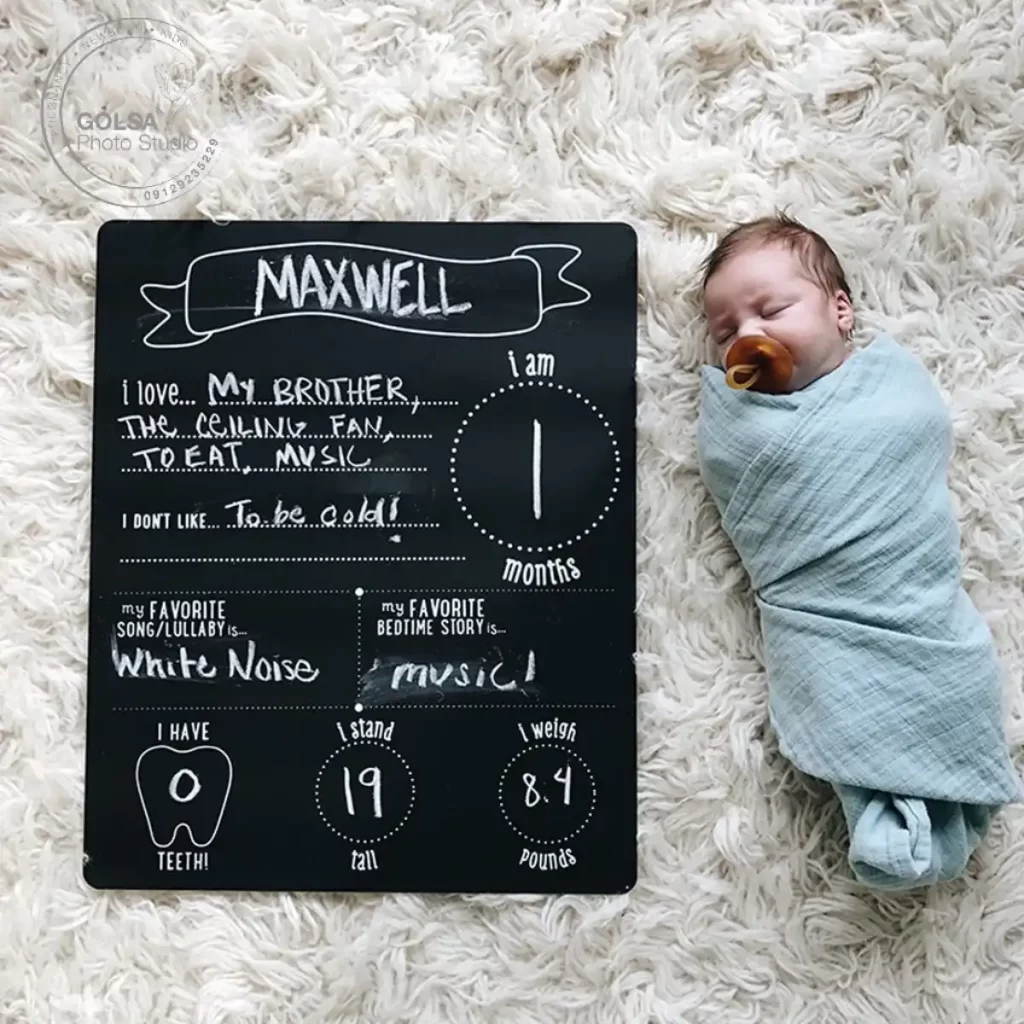 GOLSA
Photo Studio
09129235229
MAXWELL
i love... My BROTHER,
THE CEILING FAN,
TO EAT, MUSIC
I DON'T LIKE... To be cold!
i am
1
months
my FAVORITE
SONG/LULLABY is...
White Noise
my FAVORITE
BEDTIME STORY is...
music!
I HAVE
0
TEETH!
i stand
19
tall
i weigh
8.4
pounds